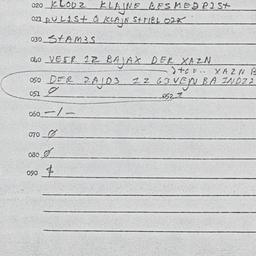 020 KLODZ KLAJNE BESMEDRIST
021 DULIST O KLAJN STTIBL 02K
030 STAM3S
040 VEER IZ BAJAX DER XAZN
XAZN B
050 DER ZAJD3 IZ GIVEN BA INDZZ
051 Ø
052 1
060 -/-
070 Ø
080 Ø
090 1